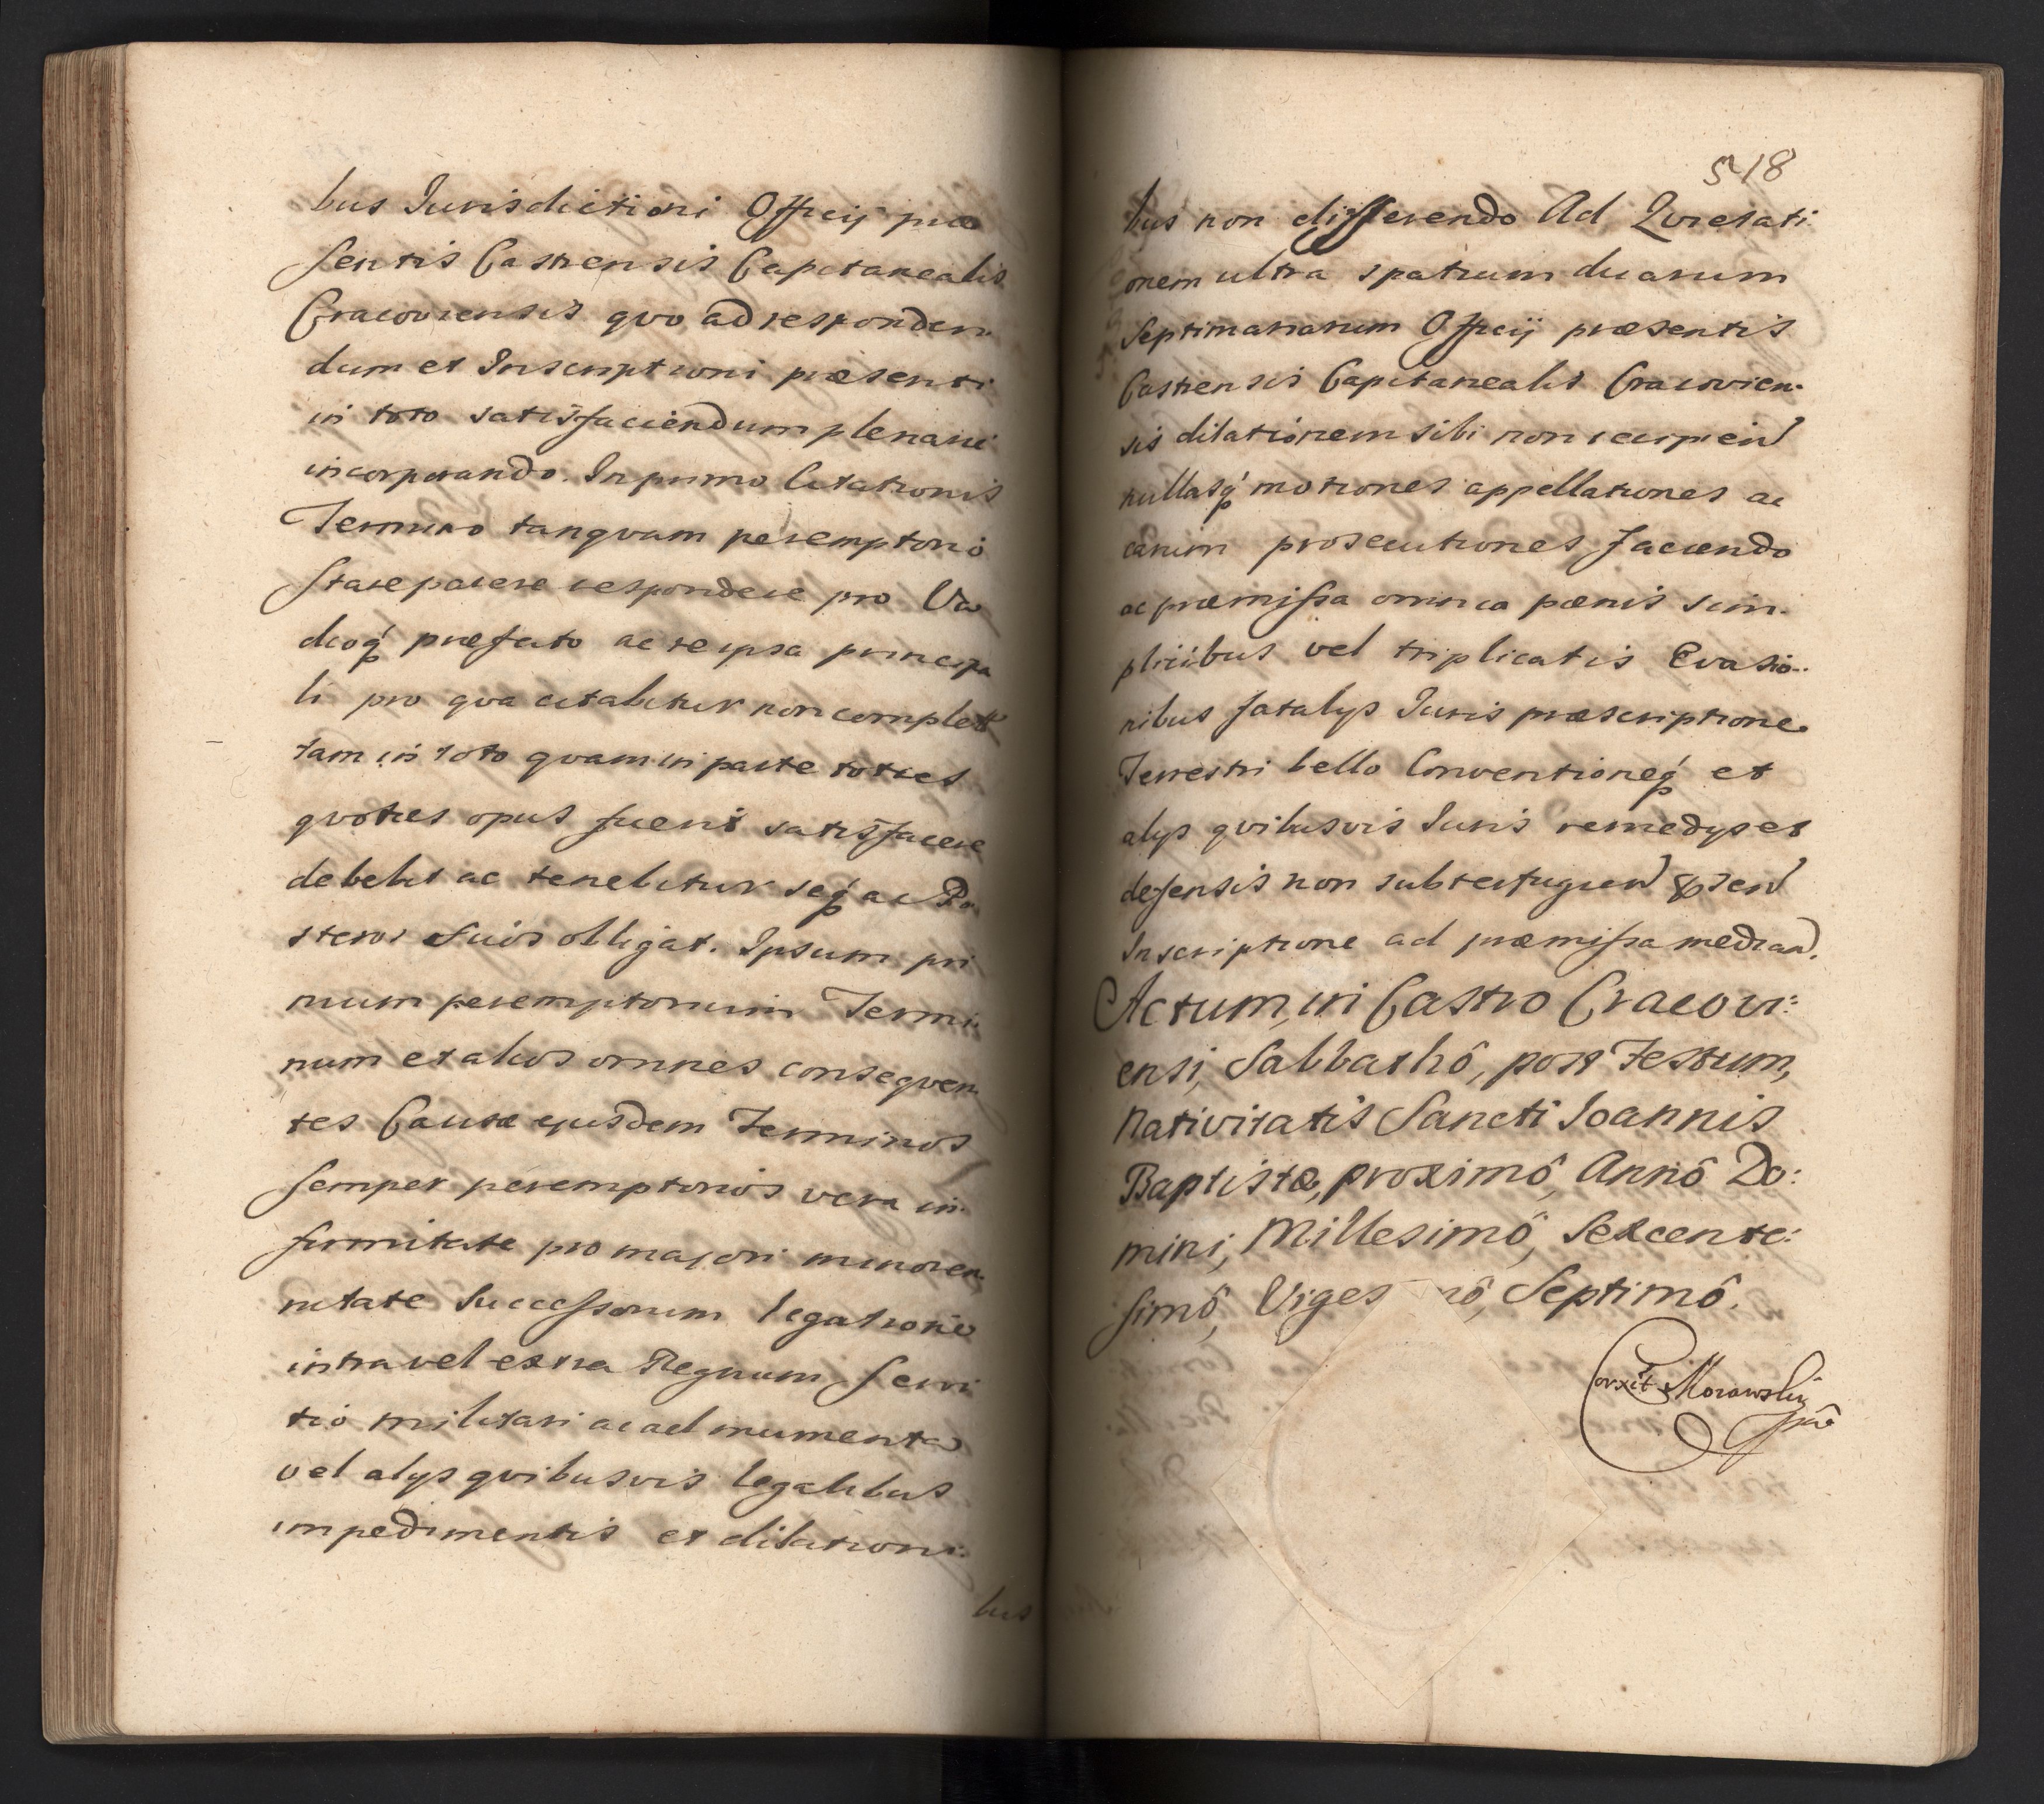 bus Jurisdictioni Officij præ
sentis Castrensis Capitanealis
Cracoviensis qvo ad responden
dum et Inscriptioni præsenti
in toto satisfaciendum plenarie
incorporando. In primo Citationis
Termino tanqvam peremptorio
stare parere respondere pro Va
dioq́ præfato ac re ipsa principa
li pro qva citabitur non complett
tam in toto qvam in parte toties
qvoties opus fuerit satisfacere
debebit ac tenebitur seq́ ac Po
steros suos obligat. Ipsum pri
mum peremptorium Termi:
num et alios omnes conseqven
tes Causæ ejusdem Terminos
semper peremptorios vera in
firmitate pro majori minoren
nitate Successorum legatione
intra vel extra Regnum servi
tio militari ac ad munimenta
vel alys qvibusvis legalibus
impedimentis et dilationi:
bus
518
bus non differendo Ad Qvietati
onem ultra spatium duarum
Septimanarum Officij præsentis
Castrensis Capitanealis Cracovien:
sis dilationem sibi non recipien
nullasq́ motiones appellationes ac
earum prosecutiones faciendo
ac præmissa omnia pœnis sim:
plicibus vel triplicatis Evasio:
nibus fatalys Juris præscriptione
Terrestri bello Conventioneq́ et
alys qvibusvis Juris remedys et
defensis non subterfugien
Inscriptione ad præmissa median.
Actum, in Castro Cracovi:
ensi, Sabbathô, post Festum,
Nativitatis Sancti Joannis
Baptistæ, proximô, Annô Do:
mini, Millesimô, Sexcente:
simô, Viges nô, Septimô.
Corxit Morawskij